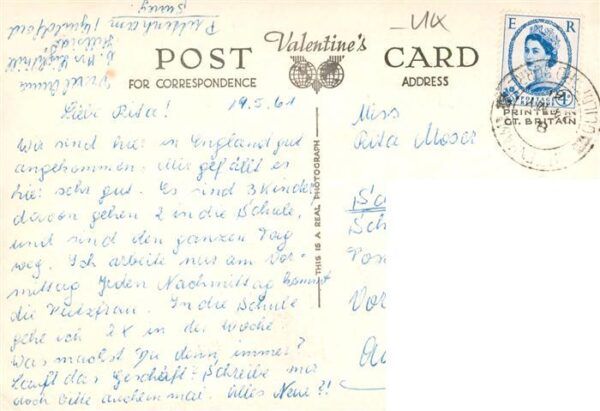 UK
Puttenham
Surrey
Hillside
POST Valentine's CARD
FOR CORRESPONDENCE
ADDRESS
E R
POSTAGE
REVENUE
PRINTED IN
GT. BRITAIN
THIS IS A REAL PHOTOGRAPH
Liebe Rita! 19.5.61
Wir sind hier in England gut
angekommen. Mir gefällt es
hier sehr gut. Es sind 3 Kinder
davon gehen 2 in die Schule,
und sind den ganzen Tag
weg. Ich arbeite nur am Vor-
mittag. Jeden Nachmittag kommt
die Putzfrau. In die Schule
gehe ich 2 X in der Woche
Was machst Du denn immer?
Läuft das Geschäft? Schreibe mir
doch bitte auch einmal. Alles Neue?!
Miss
Rita Moser